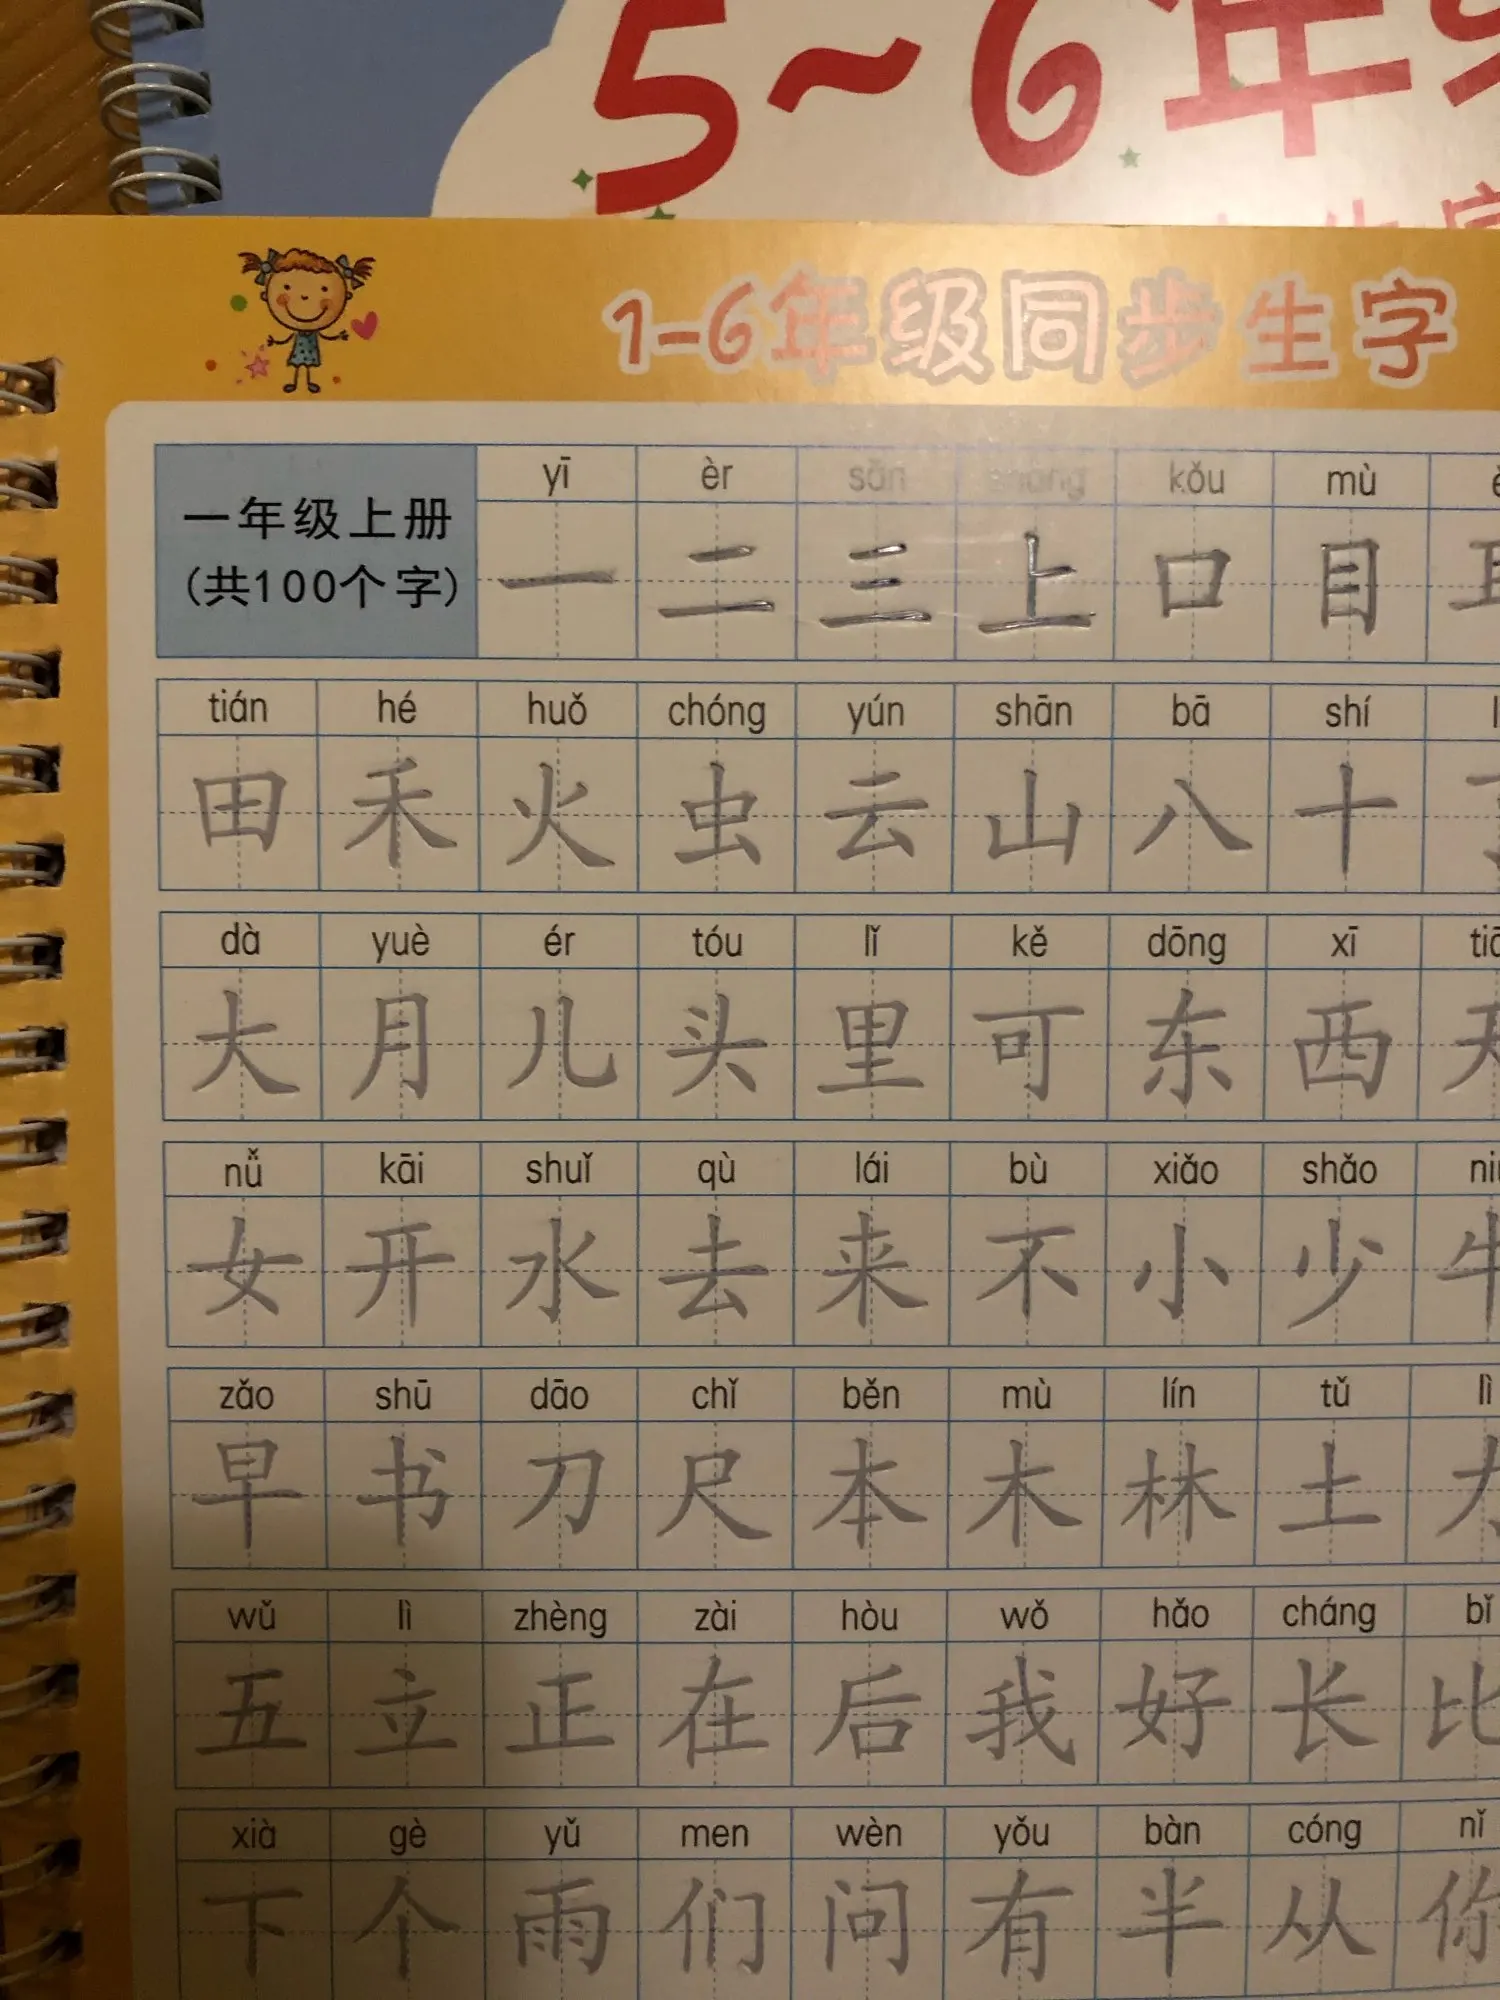 5~6年
1-6年级同步生字
一年级上册
(共100个字)
yī èr sān shàng kǒu mù
一 二 三 上 口 目
tián hé huǒ chóng yún shān bā shí
田 禾 火 虫 云 山 八 十
dà yuè ér tóu lǐ kě dōng xī
大 月 儿 头 里 可 东 西
nǚ kāi shuǐ qù lái bù xiǎo shǎo
女 开 水 去 来 不 小 少
zǎo shū dāo chǐ běn mù lín tǔ lì
早 书 刀 尺 本 木 林 土
wǔ lì zhèng zài hòu wǒ hǎo cháng bǐ
五 立 正 在 后 我 好 长 比
xià gè yǔ men wèn yǒu bàn cóng nǐ
下 个 雨 们 问 有 半 从 你